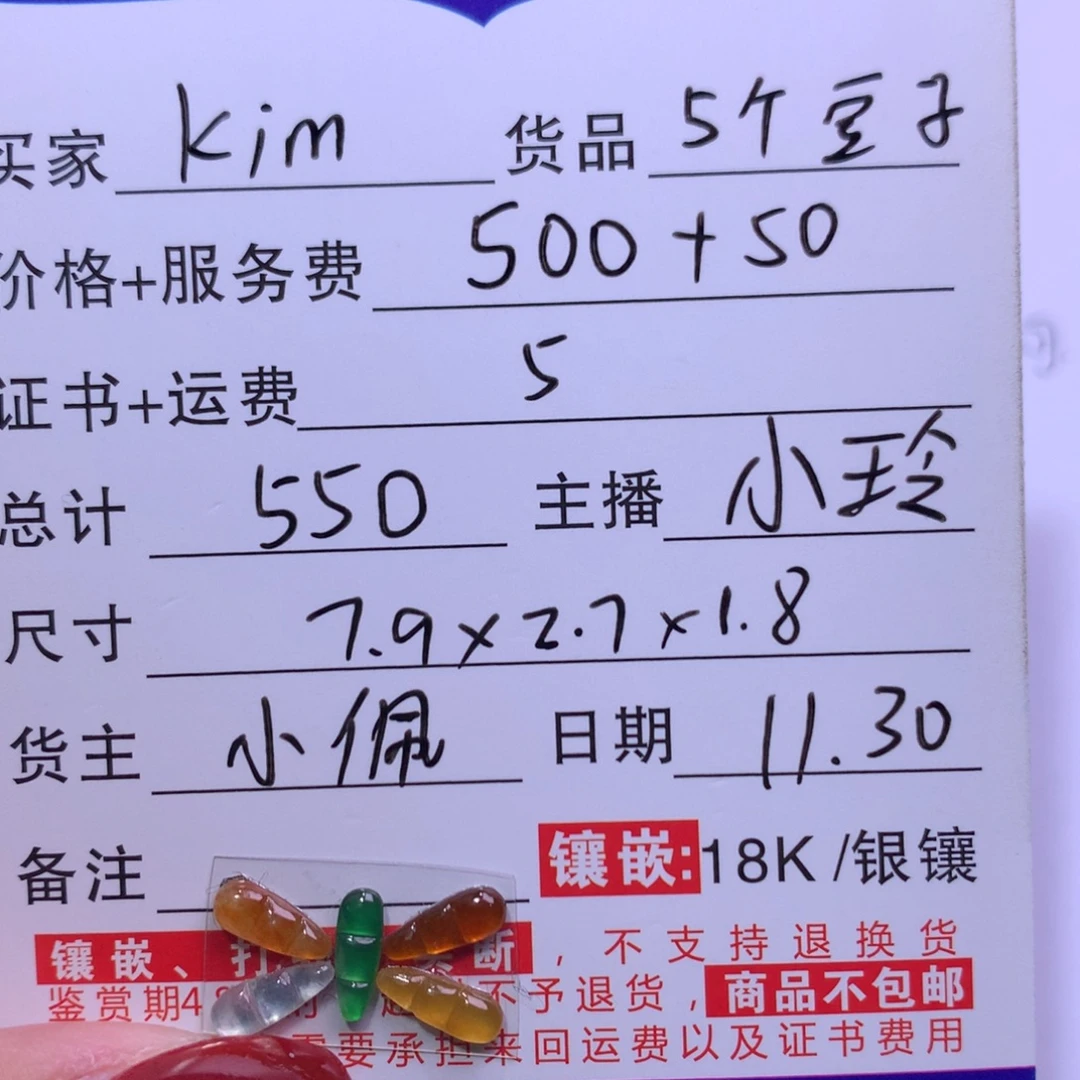 买家 kim 货品 5个豆子
价格+服务费 500+50
证书+运费 5
总计 550 主播 小玲
尺寸 7.9×2.7×1.8
货主 小佩 日期 11.30
备注 镶嵌:18K/银镶
镶嵌、打 断，不支持退换货
鉴赏期4 不予退货，商品不包邮
需要承担来回运费以及证书费用